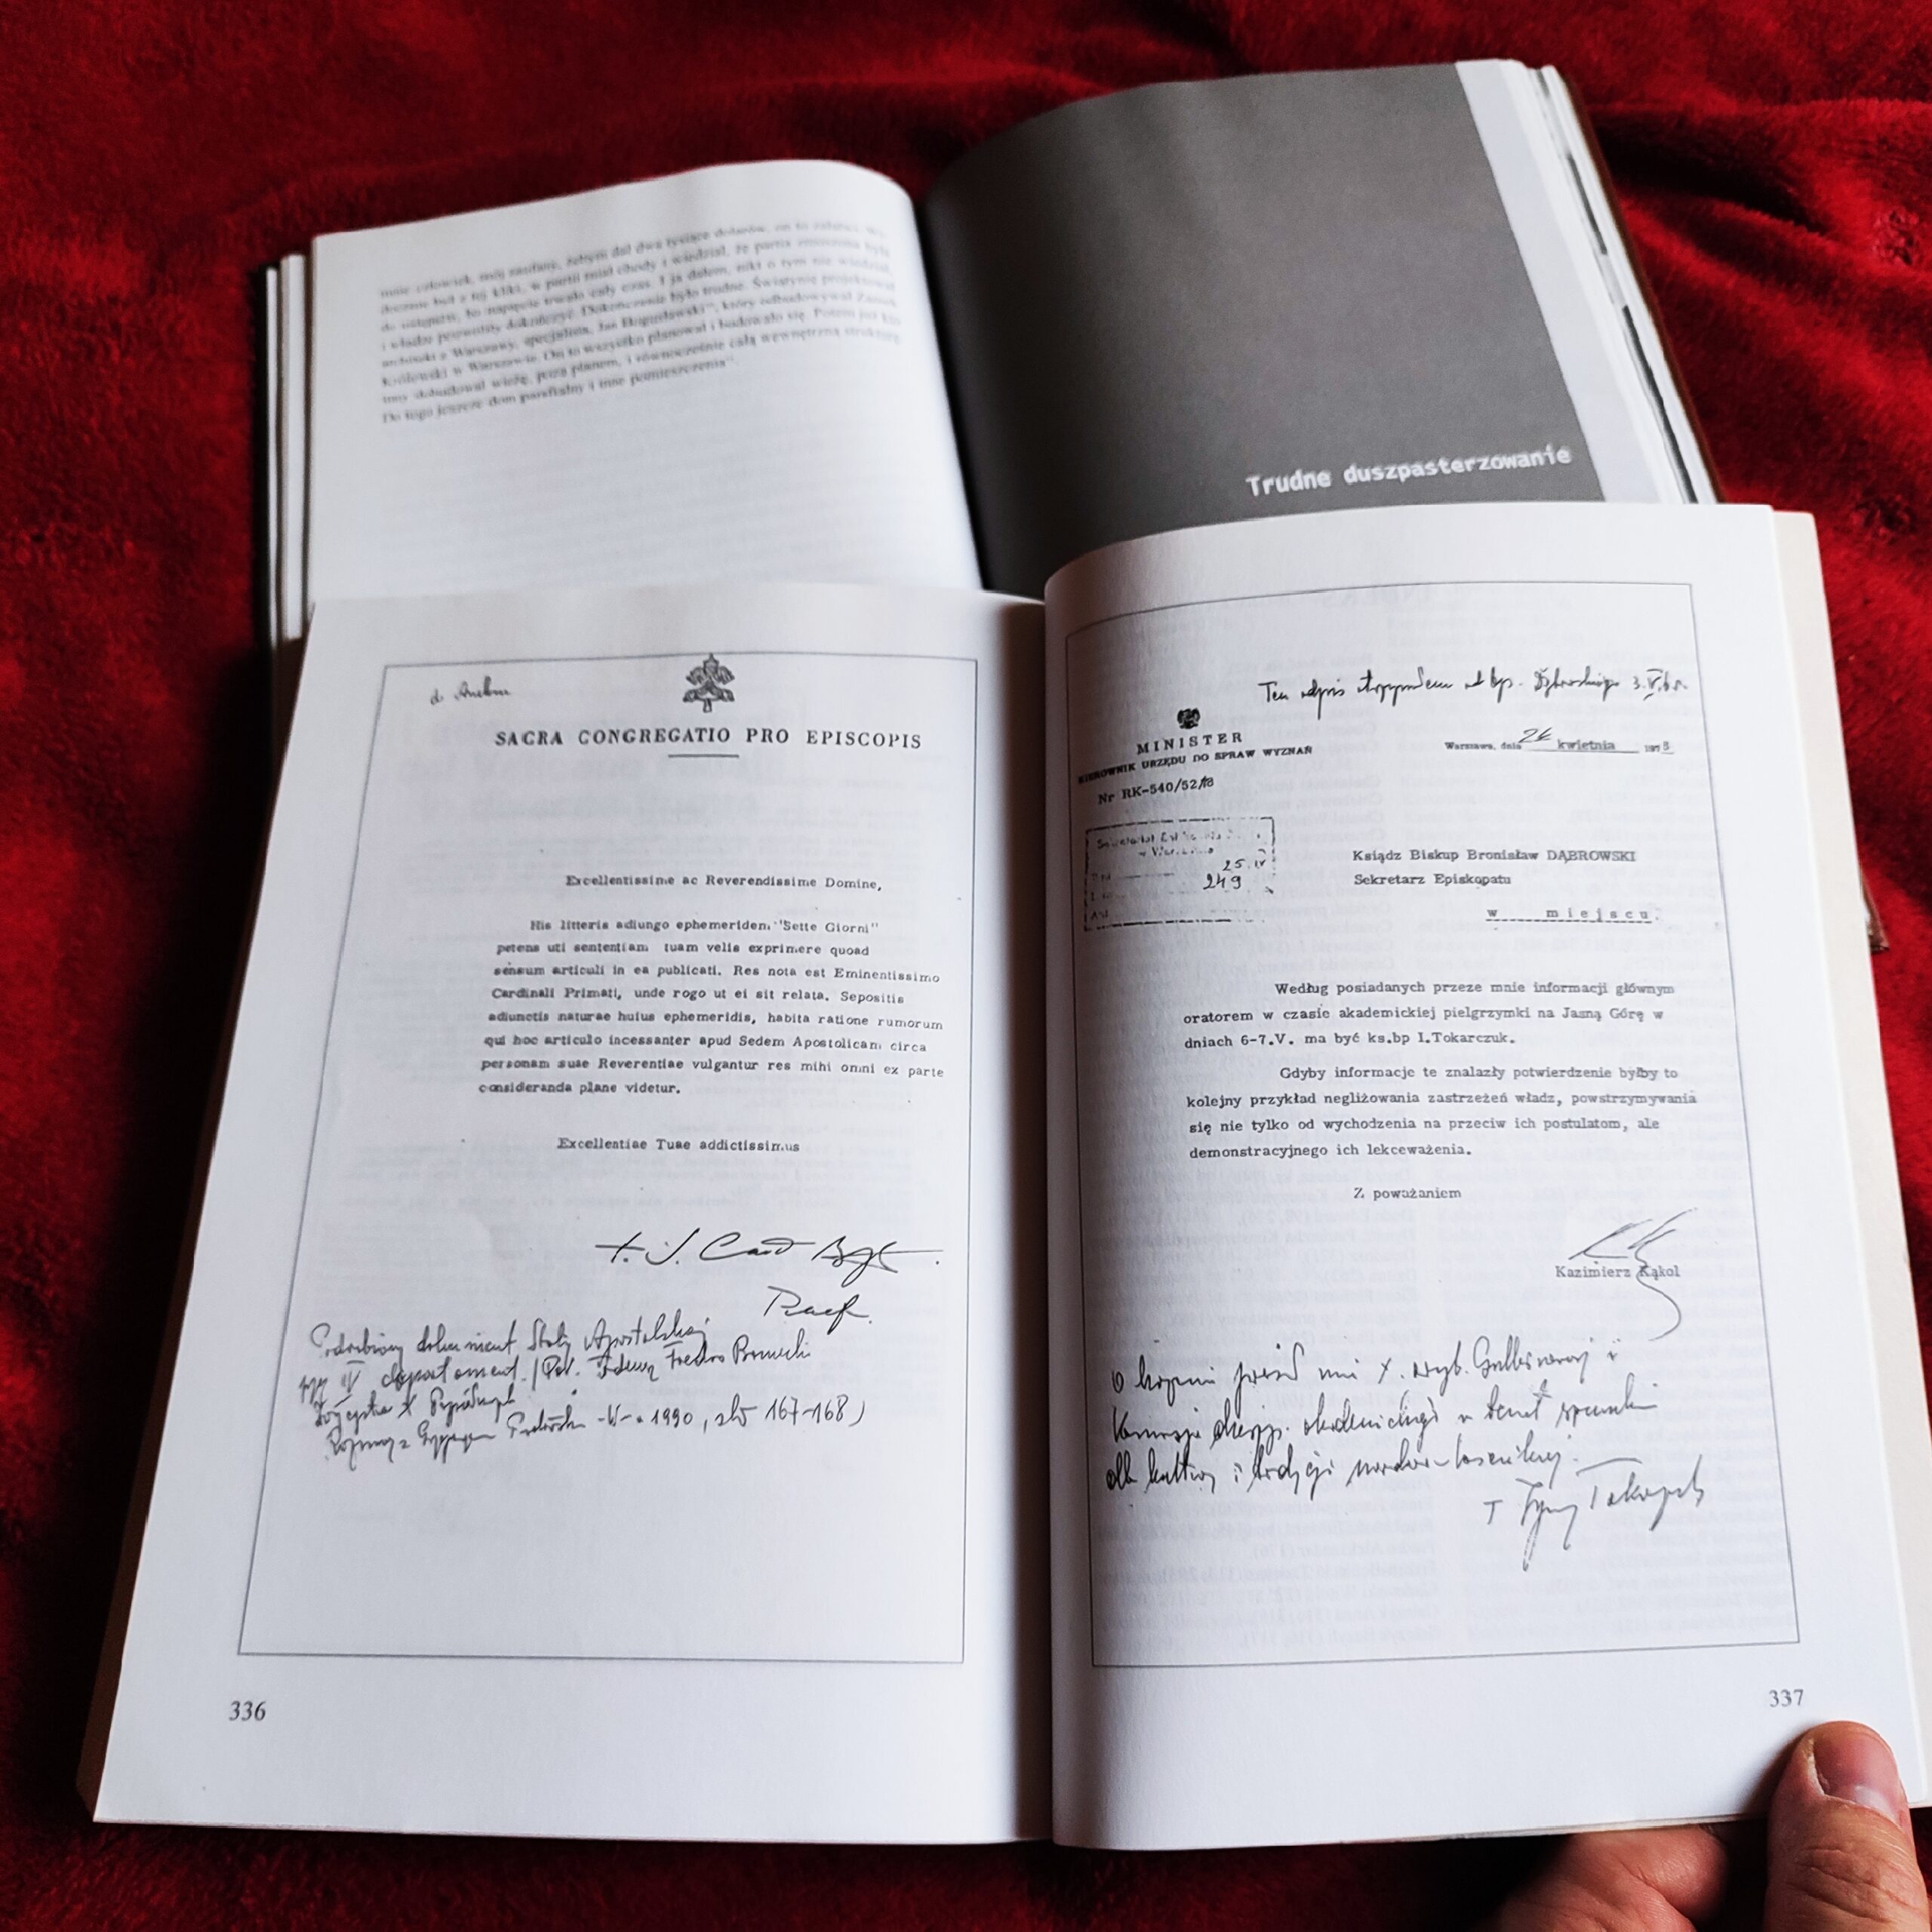 mnie człowiek, mój zaufany, żebym dał dwa tysiące dolarów, on to załatwi.
był z tej kliki, w partii miał chody i wiedział, że partia zmuszona była
do ustępstw, bo napięcie trwało cały czas. I ja dałem, nikt o tym nie wiedział,
i władze pozwoliły dokończyć. Dokończenie było trudne. Świątynię projektował
architekt z Warszawy, specjalista, Jan Bogusławski, który odbudowywał Zamek
Królewski w Warszawie. On to wszystko planował i budowało się. Potem już
inny dobudował wieżę, poza planem, i równocześnie całą wewnętrzną strukturę.
Do tego jeszcze dom parafialny i inne pomieszczenia".
Trudne duszpasterzowanie
SACRA CONGREGATIO PRO EPISCOPIS
Excellentissime ac Reverendissime Domine,
His litteris adiungo ephemeridem "Sette Giorni"
petens uti sententiam tuam velis exprimere quoad
sensum articuli in ea publicati. Res nota est Eminentissimo
Cardinali Primati, unde rogo ut ei sit relata. Sepositis
adiunctis naturae huius ephemeridis, habita ratione rumorum
qui hoc articulo incessanter apud Sedem Apostolicam circa
personam suae Reverentiae vulgantur res mihi omni ex parte
consideranda plane videtur.
Excellentiae Tuae addictissimus
+ J. Card
Praef.
Podrobiony dokument Stolicy Apostolskiej
IV departament.
1990, str 167-168)
336
Ten odpis otrzymałem od bp. Dąbrowskiego 3.V.
MINISTER
KIEROWNIK URZĘDU DO SPRAW WYZNAŃ
Nr RK-540/52/78
Warszawa, dnia 26 kwietnia 1978
25 IV
249
Ksiądz Biskup Bronisław DĄBROWSKI
Sekretarz Episkopatu
w miejscu.
Według posiadanych przeze mnie informacji głównym
oratorem w czasie akademickiej pielgrzymki na Jasną Górę w
dniach 6-7.V. ma być ks.bp I.Tokarczuk.
Gdyby informacje te znalazły potwierdzenie byłby to
kolejny przykład negliżowania zastrzeżeń władz, powstrzymywania
się nie tylko od wychodzenia na przeciw ich postulatom, ale
demonstracyjnego ich lekceważenia.
Z poważaniem
Kazimierz Kąkol
dla kultury i tradycji
Tokarczuk
337